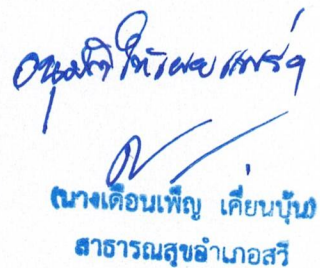 อนุมัติให้เผยแพร่ฯ
(นางเดือนเพ็ญ เคี่ยนบุ้น)
สาธารณสุขอำเภอสวี